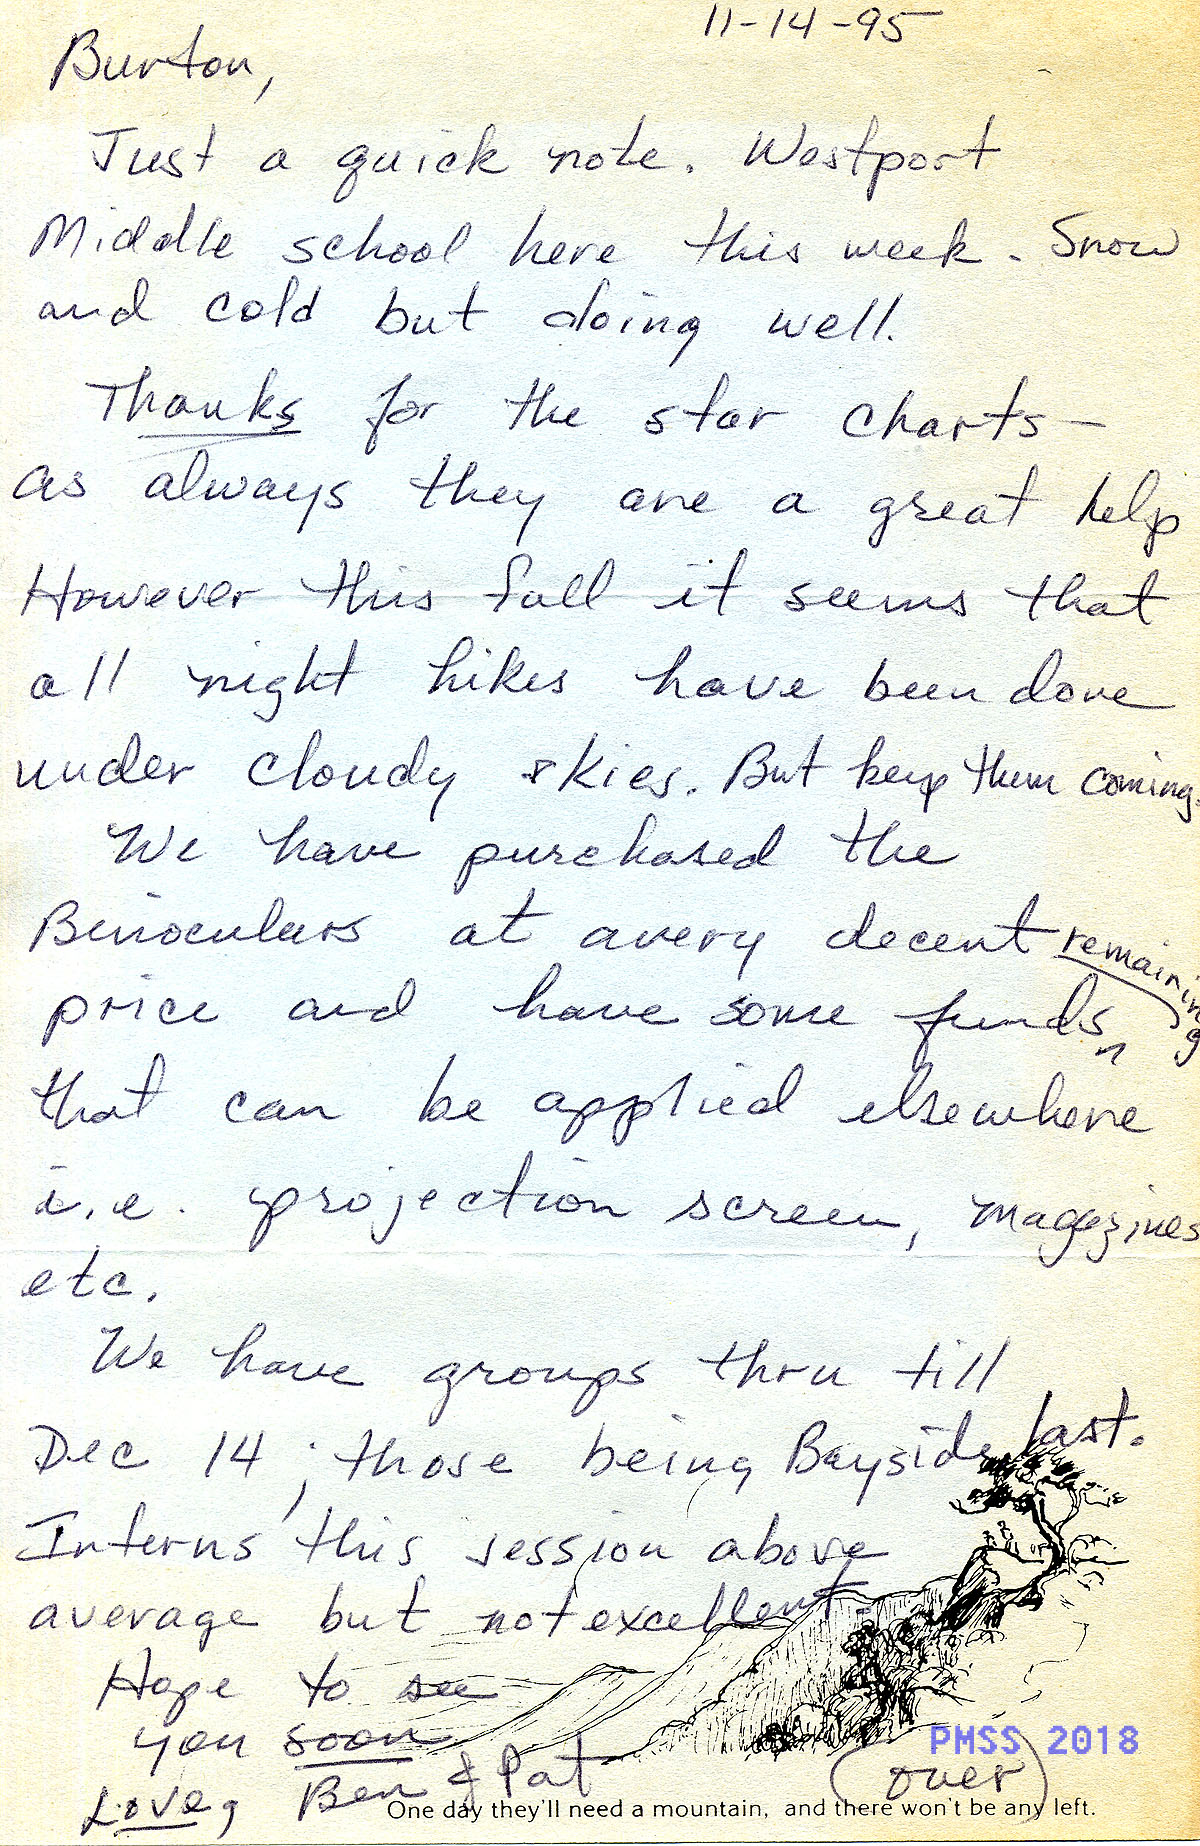 11-14-95
Burton,
Just a quick note. Westport
Middle school here this week. Snow
and cold but doing well.
Thanks for the star charts-
as always they are a great help
However this fall it seems that
all night hikes have been done
under cloudy skies. But keep them coming.
We have purchased the
Binoculars at a very decent
price and have some funds remaining
that can be applied elsewhere
i.e. projection screen, magazines
etc.
We have groups thru till
Dec 14; those being Bayside last.
Interns this session above
average but not excellent.
Hope to see
you soon
Love, Ben & Pat
(over)
PMSS 2018
One day they'll need a mountain, and there won't be any left.